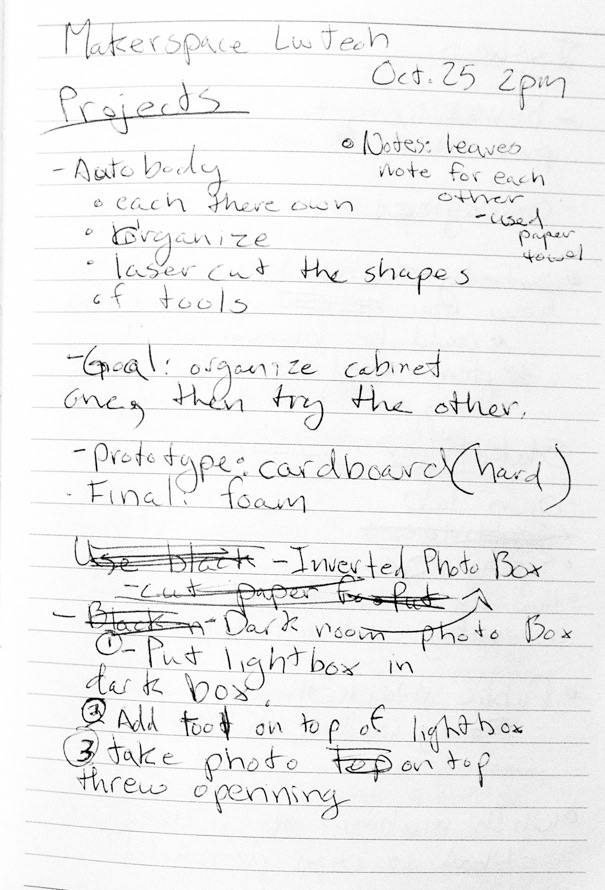 Makerspace LwTech
Oct. 25 2pm
Projects
• Notes: leaves
note for each
other
- used
paper
towel
- Autobody
• each there own
• organize
• laser cut the shapes
of tools
- Goal: organize cabinet
one, then try the other.
- Prototype: cardboard (hard)
- Final: foam
Use black - Inverted Photo Box
- cut paper
- Black - Dark room photo Box
① - Put lightbox in
dark box.
② Add tool on top of lightbox
③ take photo top on top
threw openning